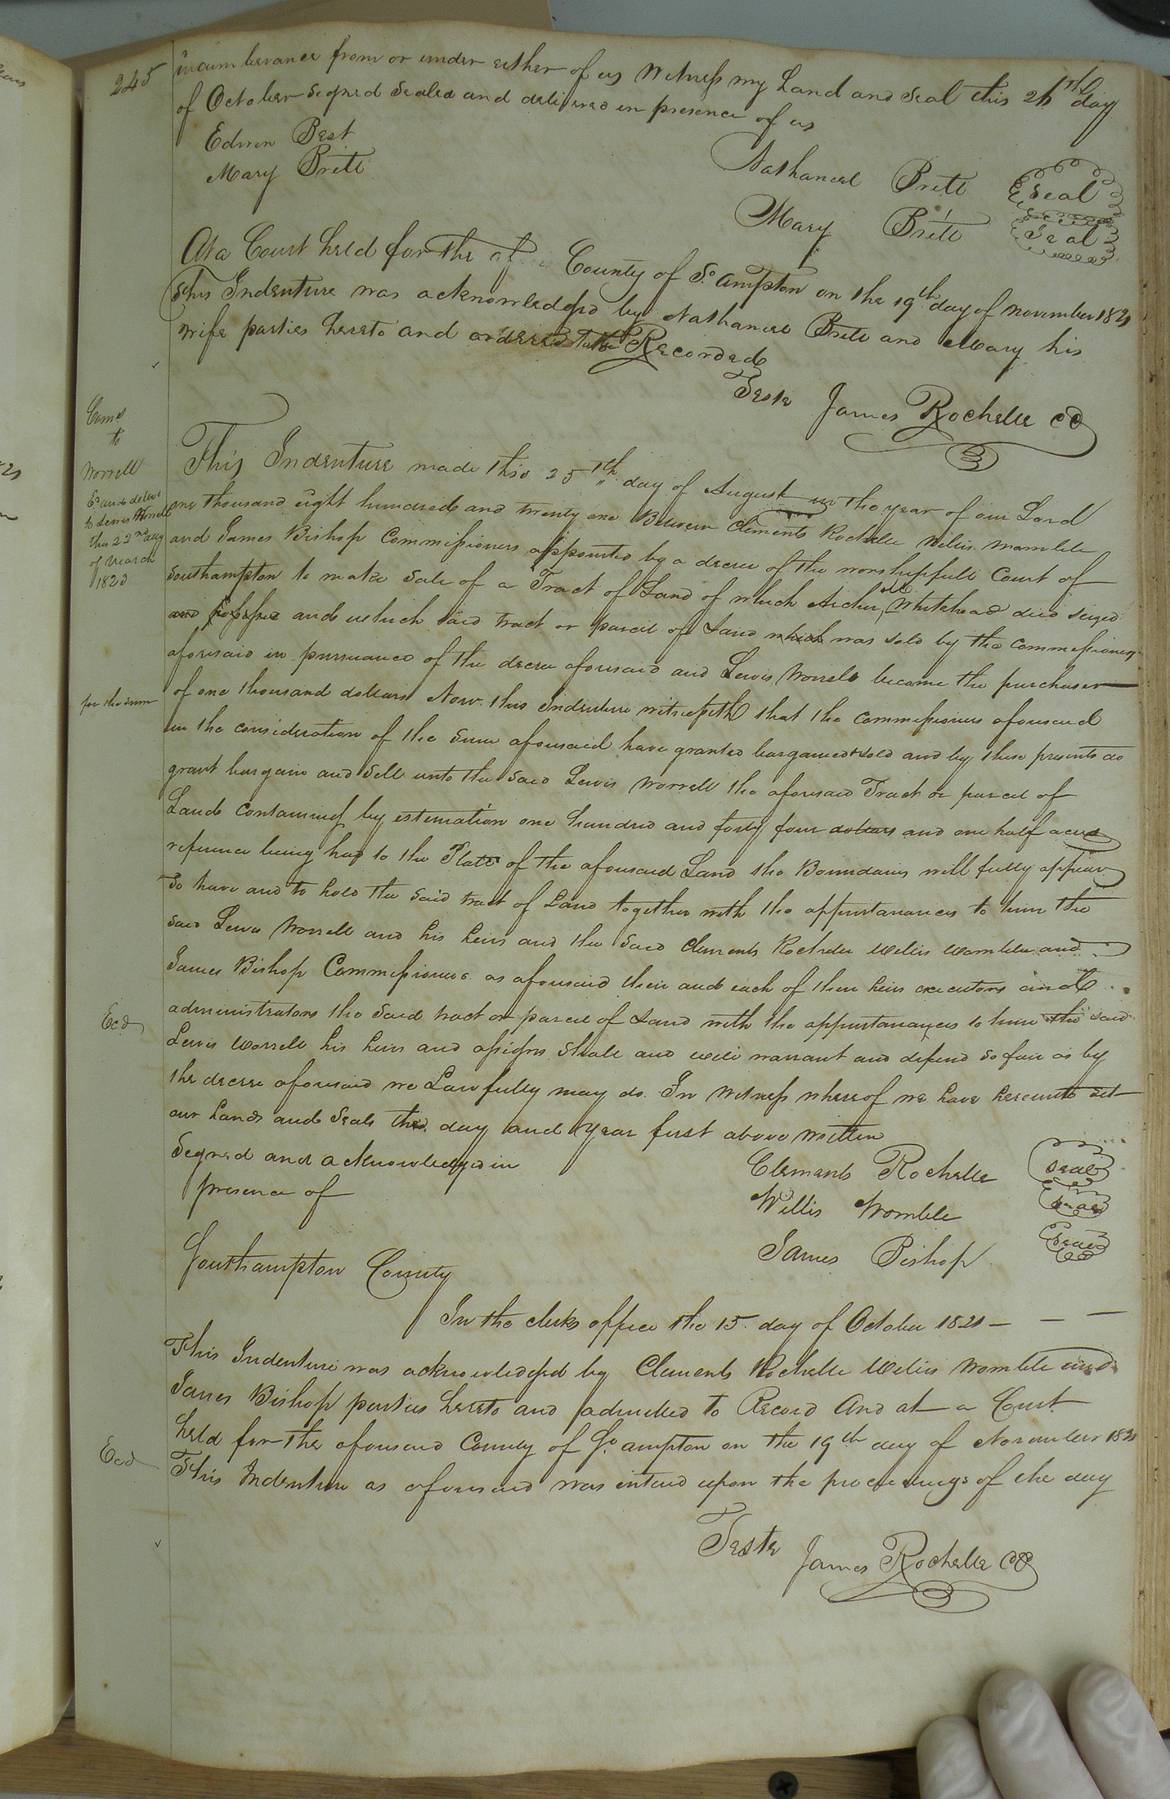 245
incumberance from or under either of us Witness my hand and seal this day
of October signed sealed and delivered in presence of us
Edwin Best
Mary Britt
Nathaniel Britt Seal
Mary Britt Seal
At a Court held for the County of So. ampton on the 19th day of november 1821
This Indenture was acknowledged by Nathaniel Britt and Mary his
wife parties hereto and ordered to be Recorded
Teste James Rochelle CC
Coms
to
Worrell
Ed and deld
to Lewis Worrell
this 22nd day
of March
1823
This Indenture made this 25th day of August in the year of our Lord
one thousand eight hundred and twenty one Between Clements Rochelle Willis Womble
and James Bishop Commissioners appointed by a decree of the worshipfull Court of
Southampton to make sale of a Tract of Land of which Archer Whitehead died seized
and possessed and which said tract or parcel of Land which was sold by the commissioners
aforesaid in pursuance of the decree aforesaid and Lewis Worrell became the purchaser
for the sum
of one thousand dollars Now this indenture witnesseth that the commissioners aforesaid
in the consideration of the sum aforesaid have granted bargained & sold and by these presents do
grant bargain and sell unto the said Lewis Worrell the aforesaid Tract or parcel of
Land containing by estimation one hundred and forty four dollars and one half acres
reference being had to the Platt of the aforesaid Land the Boundaries will fully appear
To have and to hold the said tract of Land together with the appurtanances to him the
said Lewis Worrell and his heirs and the said Clements Rochelle Willis Womble and
James Bishop Commissioners as aforesaid their and each of them heirs executors and
administrators the said tract or parcel of Land with the appurtanances to him the said
Ecd
Lewis Worrell his heirs and assigns shall and will warrant and defend so far as by
the decree aforesaid we Lawfully may do. In Witness whereof we have hereunto set
our hands and seals the day and year first above written
Signed and acknowledged in
presence of
Clements Rochelle Seal
Willis Womble Seal
James Bishop Seal
Southampton County
In the clerks office the 15 day of October 1821
This Indenture was acknowledged by Clements Rochelle Willis Womble and
James Bishop parties hereto and admitted to Record And at a Court
held for the aforesaid County of So. ampton on the 19th day of November 1821
Ecd
This Indenture as aforesaid was entered upon the proceedings of the day
Teste James Rochelle CC